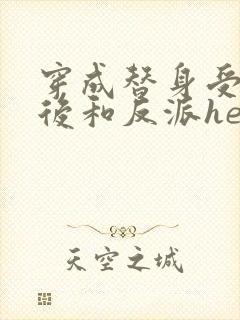 穿成替身受
後和反派he
天空之城